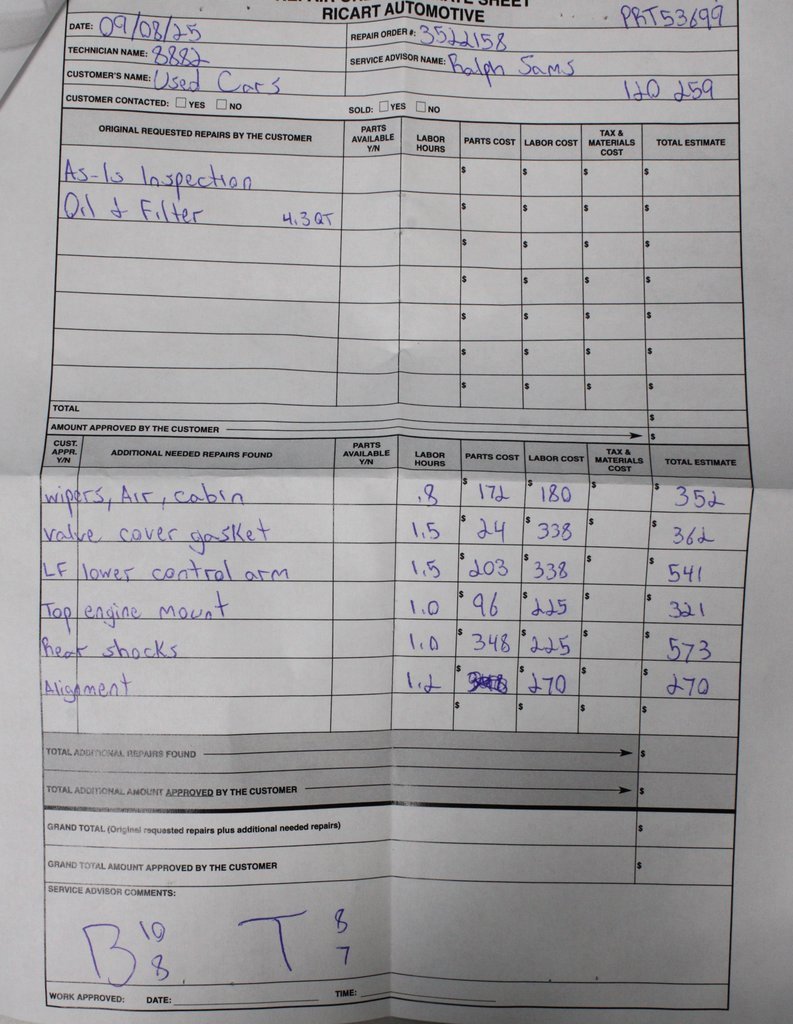 SHEET
RICART AUTOMOTIVE
PRT53699
DATE: 09/08/25 REPAIR ORDER #: 3522158
TECHNICIAN NAME: 8882 SERVICE ADVISOR NAME: Ralph Sams
CUSTOMER'S NAME: Used Cars 120 259
CUSTOMER CONTACTED: YES NO SOLD: YES NO
ORIGINAL REQUESTED REPAIRS BY THE CUSTOMER PARTS AVAILABLE Y/N LABOR HOURS PARTS COST LABOR COST TAX & MATERIALS COST TOTAL ESTIMATE
As-Is Inspection $ $ $ $
Oil & Filter 4.3 QT $ $ $ $
$ $ $ $
$ $ $ $
$ $ $ $
$ $ $ $
$ $ $ $
TOTAL $
AMOUNT APPROVED BY THE CUSTOMER $
CUST. APPR. Y/N ADDITIONAL NEEDED REPAIRS FOUND PARTS AVAILABLE Y/N LABOR HOURS PARTS COST LABOR COST TAX & MATERIALS COST TOTAL ESTIMATE
wipers, Air, cabin .8 $ 172 $ 180 $ $ 352
valve cover gasket 1.5 $ 24 $ 338 $ $ 362
LF lower control arm 1.5 $ 203 $ 338 $ $ 541
Top engine mount 1.0 $ 96 $ 225 $ $ 321
Rear shocks 1.0 $ 348 $ 225 $ $ 573
Alignment 1.2 $ $ 270 $ $ 270
$ $ $ $
TOTAL ADDITIONAL REPAIRS FOUND $
TOTAL ADDITIONAL AMOUNT APPROVED BY THE CUSTOMER $
GRAND TOTAL (Original requested repairs plus additional needed repairs) $
GRAND TOTAL AMOUNT APPROVED BY THE CUSTOMER $
SERVICE ADVISOR COMMENTS:
B 10 8 T 8 7
WORK APPROVED: DATE: TIME: